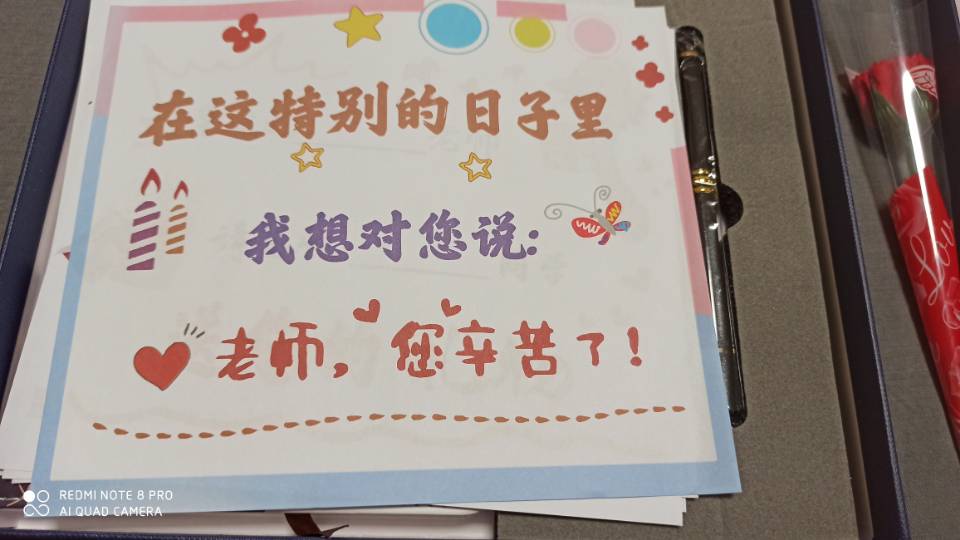 在这特别的日子里
我想对您说:
老师，您辛苦了！
Love
REDMI NOTE 8 PRO
AI QUAD CAMERA